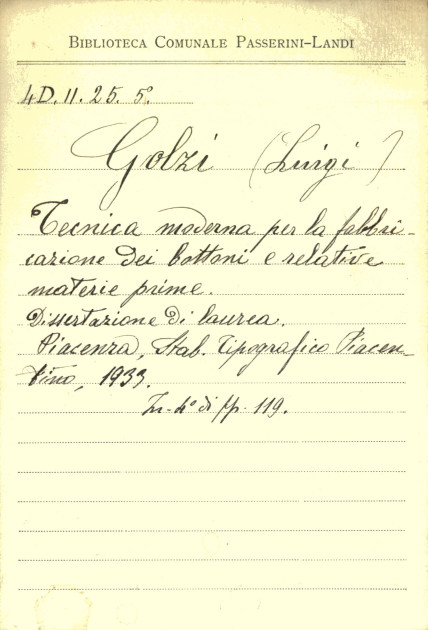 BIBLIOTECA COMUNALE PASSERINI-LANDI
4D.11.25.5º.
Golzi (Luigi)
Tecnica moderna per la fabbri-
cazione dei bottoni e relative
materie prime.
Dissertazione di laurea.
Piacenza, Stab. Tipografico Piacen-
tino, 1933.
In-4º di pp. 119.